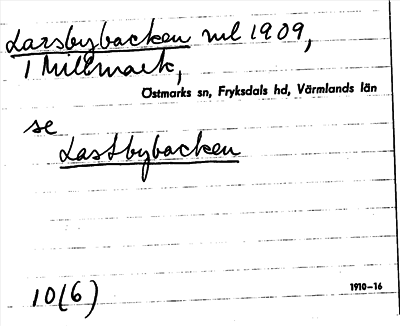 Larsbybacken ml 1909,
1 Millmark,
Östmarks sn, Fryksdals hd, Värmlands län
se
Lastbybacken
10(6)
1910–16